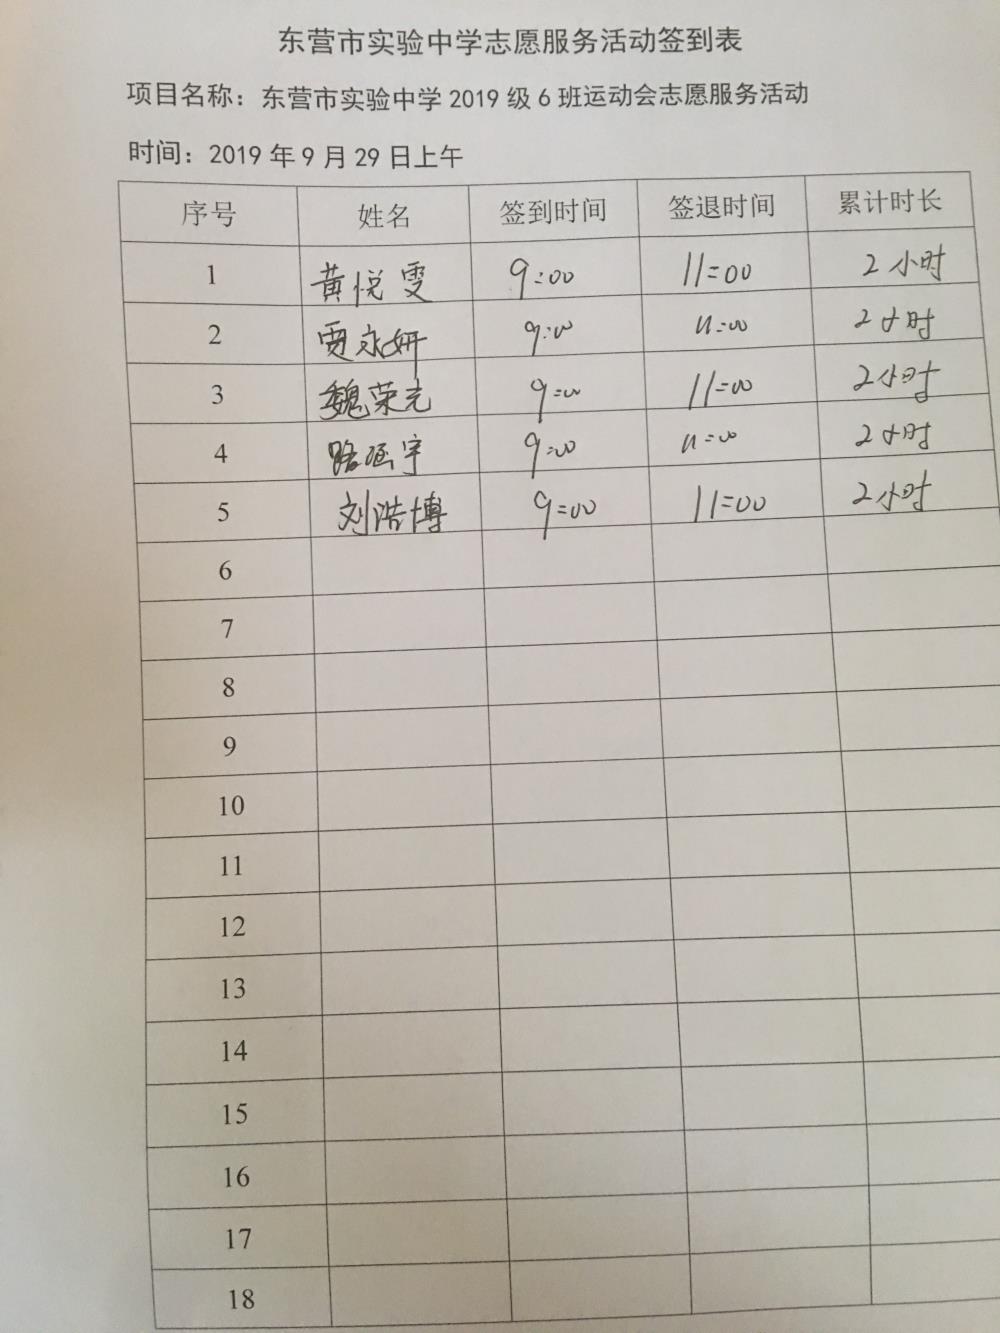 东营市实验中学志愿服务活动签到表
项目名称：东营市实验中学 2019 级 6 班运动会志愿服务活动
时间：2019 年 9 月 29 日上午
序号 姓名 签到时间 签退时间 累计时长
1 黄悦雯 9:00 11:00 2小时
2 贾永妍 9:00 11:00 2小时
3 魏荣光 9:00 11:00 2小时
4 路涵宇 9:00 11:00 2小时
5 刘浩博 9:00 11:00 2小时
6
7
8
9
10
11
12
13
14
15
16
17
18